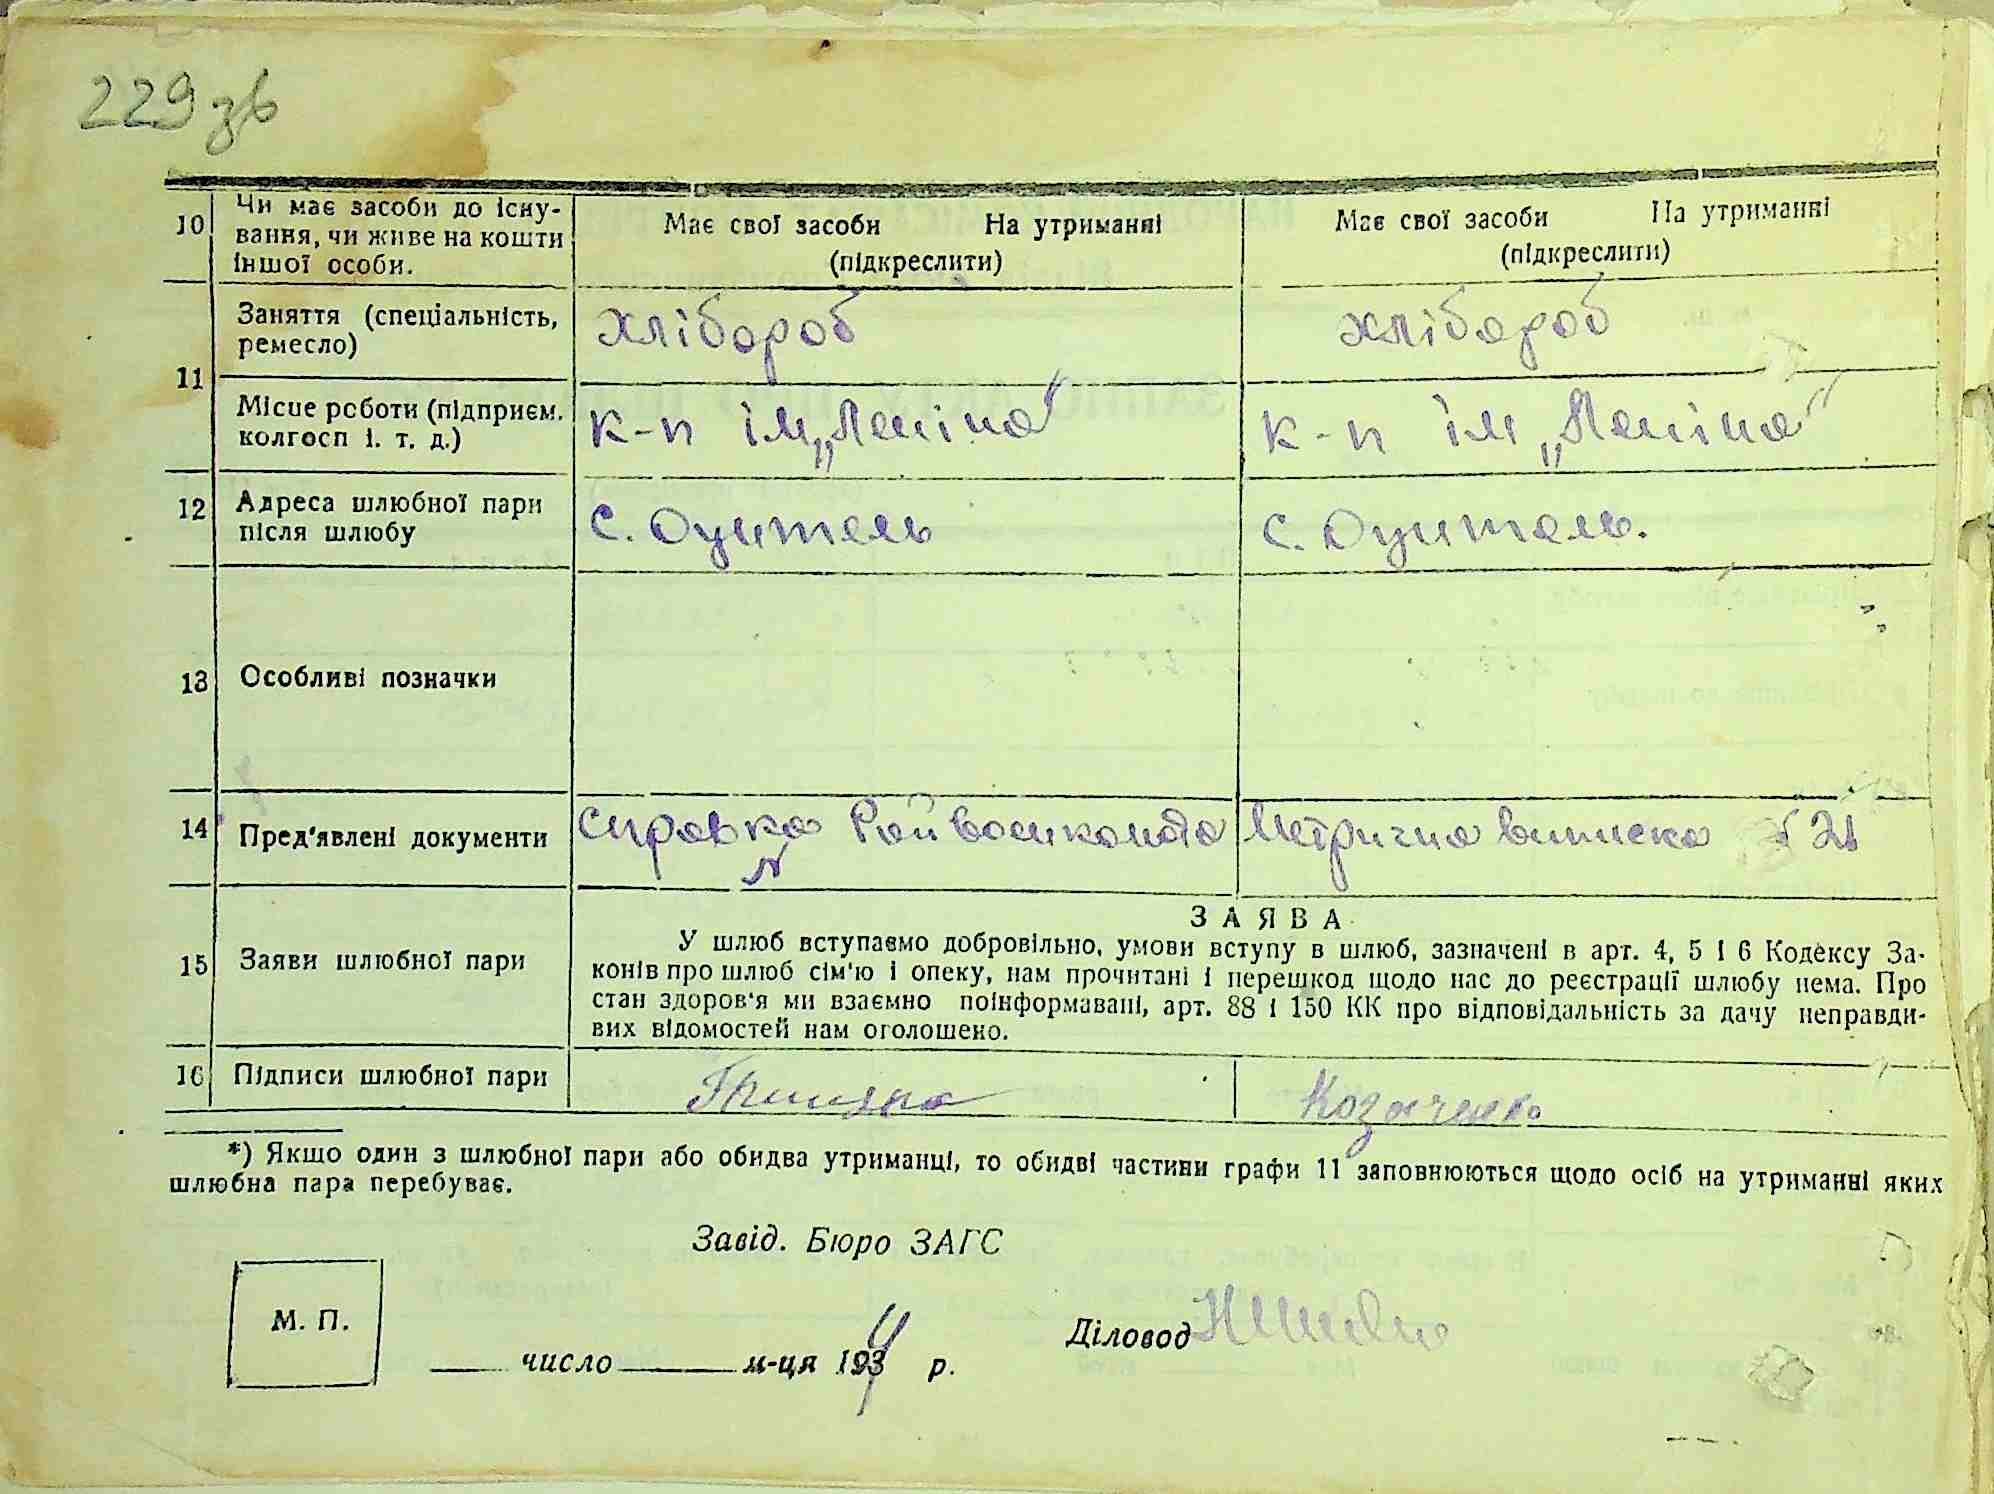 229 зв
10 Чи має засоби до існу-
вання, чи живе на кошти
іншої особи.
Має свої засоби На утриманні
(підкреслити)
Має свої засоби На утриманні
(підкреслити)
11 Заняття (спеціальність,
ремесло)
хлібороб
хлібороб
Місце роботи (підприєм.
колгосп і. т. д.)
к-п ім „Леніна"
к-п ім „Леніна"
12 Адреса шлюбної пари
після шлюбу
с. Оцитель
с. Оцитель.
13 Особливі позначки
14 Пред'явлені документи
справка Райвоєнкомата
N
Метрична виписка 21
15 Заяви шлюбної пари
ЗАЯВА
У шлюб вступаємо добровільно, умови вступу в шлюб, зазначені в арт. 4, 5 і 6 Кодексу За-
конів про шлюб сім'ю і опеку, нам прочитані і перешкод щодо нас до реєстрації шлюбу нема. Про
стан здоров'я ми взаємно поінформавані, арт. 88 і 150 КК про відповідальність за дачу неправди-
вих відомостей нам оголошено.
16 Підписи шлюбної пари
Козаченко
*) Якщо один з шлюбної пари або обидва утриманці, то обидві частини графи 11 заповнюються щодо осіб на утриманні яких
шлюбна пара перебуває.
Завід. Бюро ЗАГС
М. П.
Діловод
число м-ця 194 р.